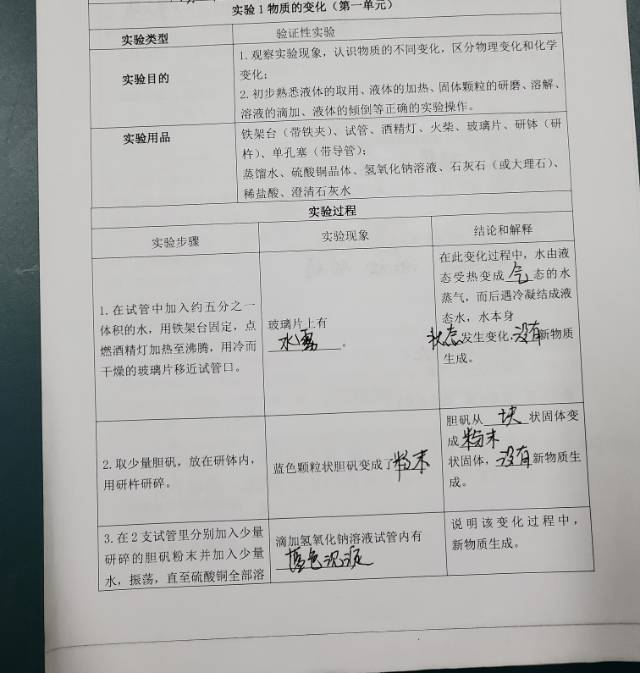 实验1物质的变化（第一单元）
实验类型
验证性实验
实验目的
1.观察实验现象，认识物质的不同变化，区分物理变化和化学
变化；
2.初步熟悉液体的取用、液体的加热、固体颗粒的研磨、溶解、
溶液的滴加、液体的倾倒等正确的实验操作。
实验用品
铁架台（带铁夹）、试管、酒精灯、火柴、玻璃片、研钵（研
杵）、单孔塞（带导管）；
蒸馏水、硫酸铜晶体、氢氧化钠溶液、石灰石（或大理石）、
稀盐酸、澄清石灰水
实验过程
实验步骤
实验现象
结论和解释
1.在试管中加入约五分之一
体积的水，用铁架台固定，点
燃酒精灯加热至沸腾，用冷而
干燥的玻璃片移近试管口。
玻璃片上有
水雾。
在此变化过程中，水由液
态受热变成气态的水
蒸气，而后遇冷凝结成液
态水，水本身
状态发生变化，没有新物质
生成。
2.取少量胆矾，放在研钵内，
用研杵研碎。
蓝色颗粒状胆矾变成了粉末
胆矾从块状固体变
成粉末
状固体，没有新物质生
成。
3.在2支试管里分别加入少量
研碎的胆矾粉末并加入少量
水，振荡，直至硫酸铜全部溶
滴加氢氧化钠溶液试管内有
蓝色沉淀
说明该变化过程中，
新物质生成。